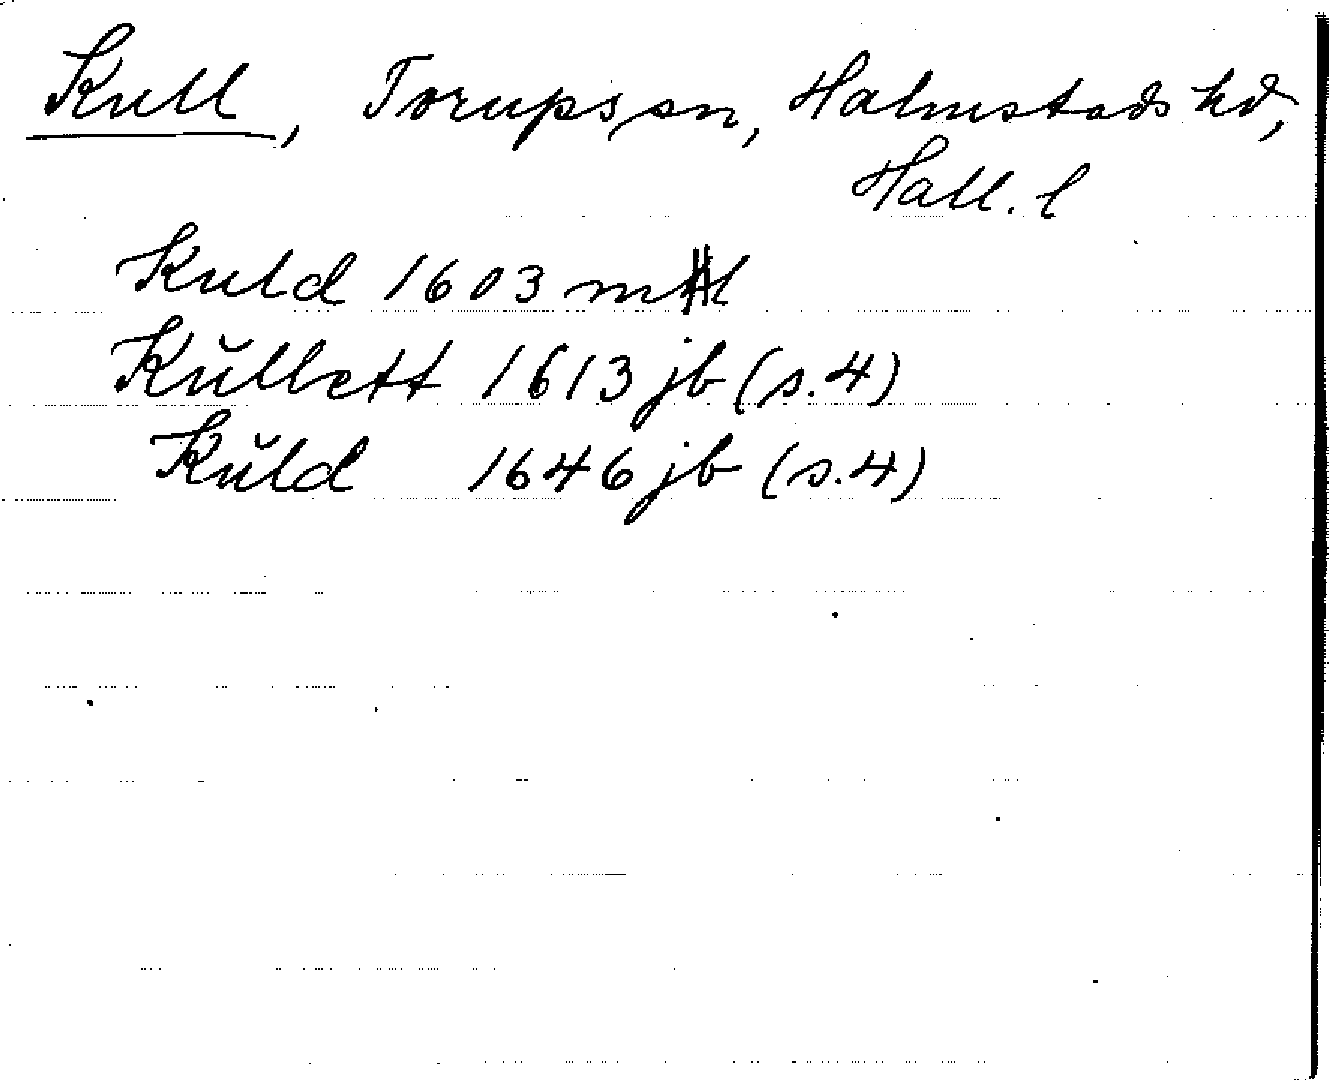 Kull, Torups sn, Halmstads hd,
Hall. l
Kuld 1603
Kŭllett 1613 jb (s.4)
Kŭld 1646 jb (s.4)